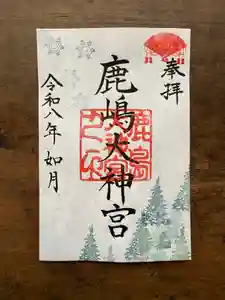 奉拝
鹿嶋大神宮
令和八年 如月